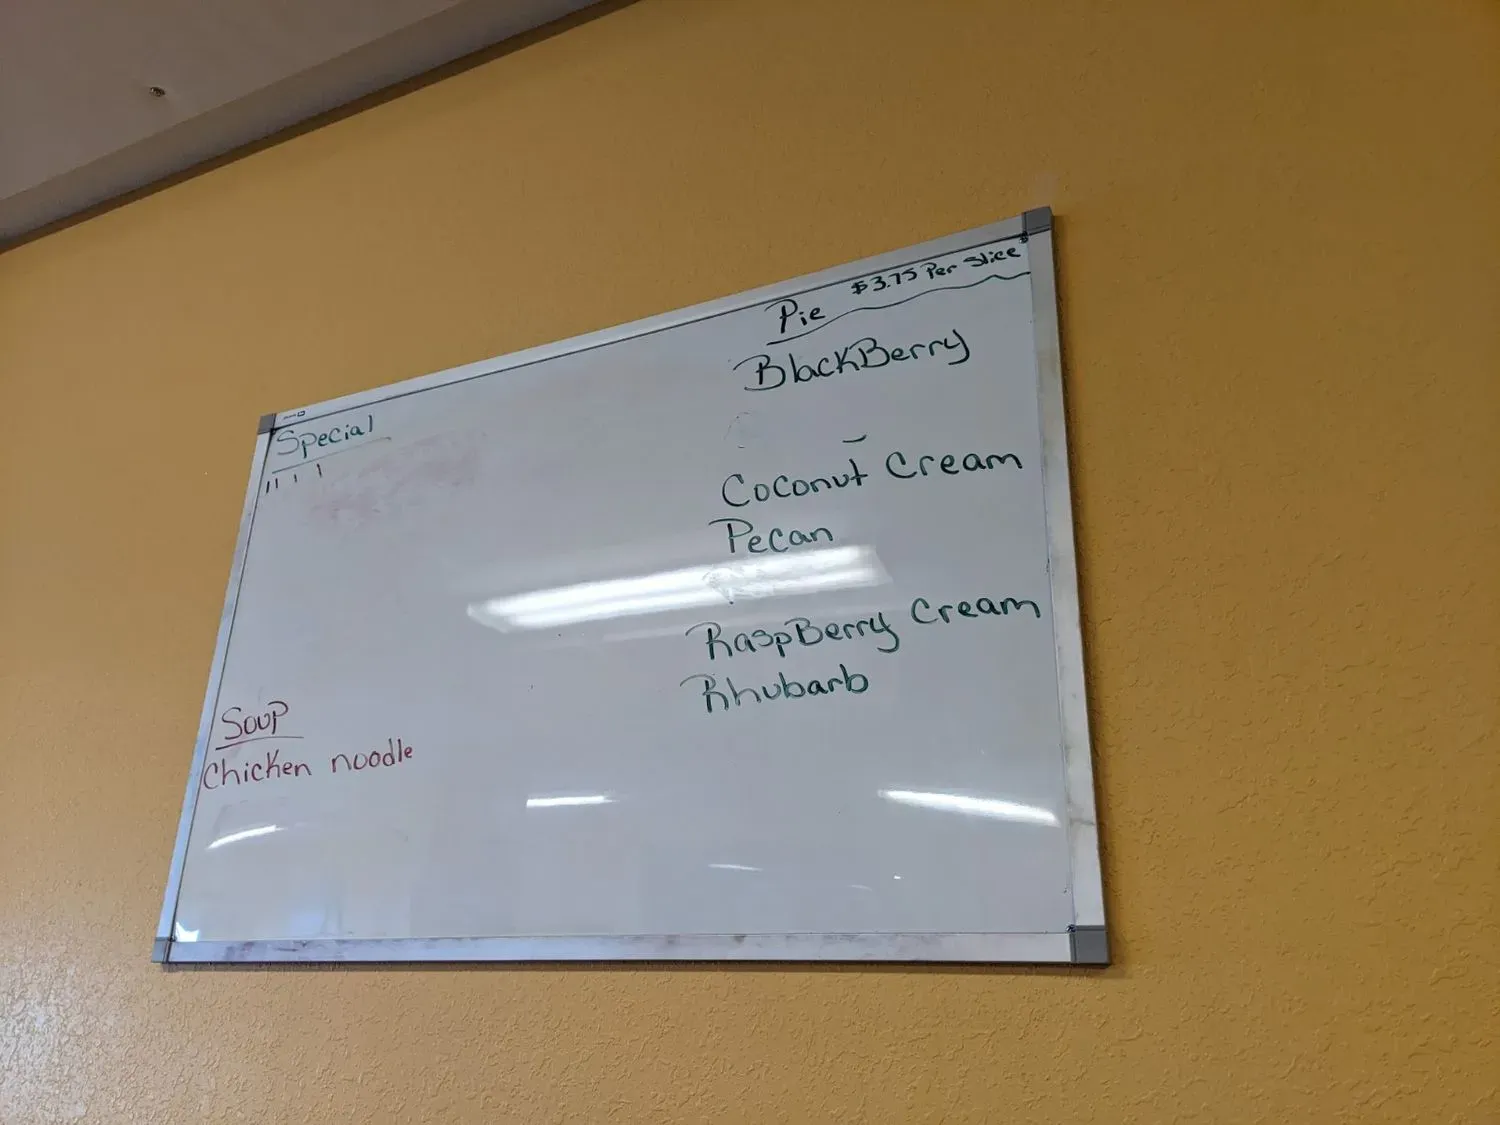 Special
Soup
Chicken noodle
Pie $3.75 Per Slice
BlackBerry
Coconut Cream
Pecan
RaspBerry Cream
Rhubarb